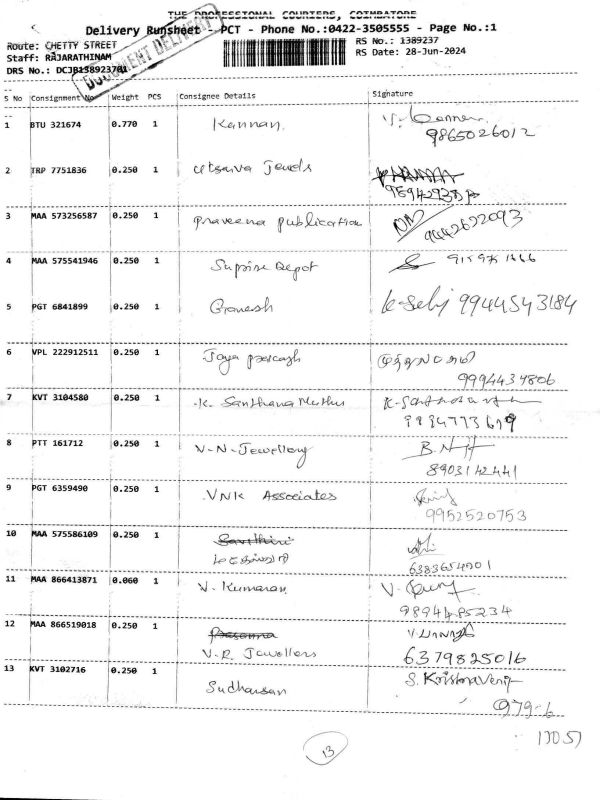 THE PROFESSIONAL COURIERS, COIMBATORE
Delivery Runsheet - PCT - Phone No.:0422-3505555 - Page No.:1
Route: CHETTY STREET
RS No.: 1389237
Staff: RAJARATHINAM
RS Date: 28-Jun-2024
DRS No.: DCJB138923701
DOCUMENT DELIVERY
S No Consignment No Weight PCS Consignee Details Signature
1 BTU 321674 0.770 1 Kannan
9865026012
2 TRP 7751836 0.250 1 Utsava Jewels
3 MAA 573256587 0.250 1 praveena publication
9442622093
4 MAA 575541946 0.250 1 Suprise Depot
5 PGT 6841899 0.250 1 Ganesh 9944543184
6 VPL 222912511 0.250 1 Jaya prakash
9994434806
7 KVT 3104580 0.250 1 K. Santhana Muthu
8 PTT 161712 0.250 1 V.N. Jewellery
8903142441
9 PGT 6359490 0.250 1 VNK Associates
9952520753
10 MAA 575586109 0.250 1
11 MAA 866413871 0.060 1 V. Kumaran
9894485234
12 MAA 866519018 0.250 1 Prasanna
V.R. Jewellers 6379825016
13 KVT 3102716 0.250 1 Sudharsan S. Krishnaveni
13